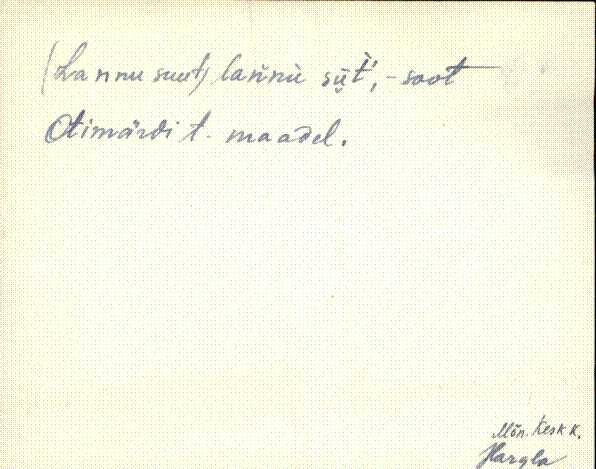 (Lannu suut) lan̆nù sṳ̄t̀', - soot
Otimärdi t. maadel.
Mõn. Kesk k.
Hargla